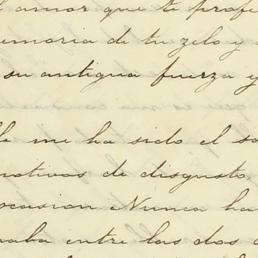 amor que te profe
emoria de tu zelo y
su antigua fuerza y
me ha sido el so
motivos de disgusto
ocasion Nunca ha
aba entre las dos